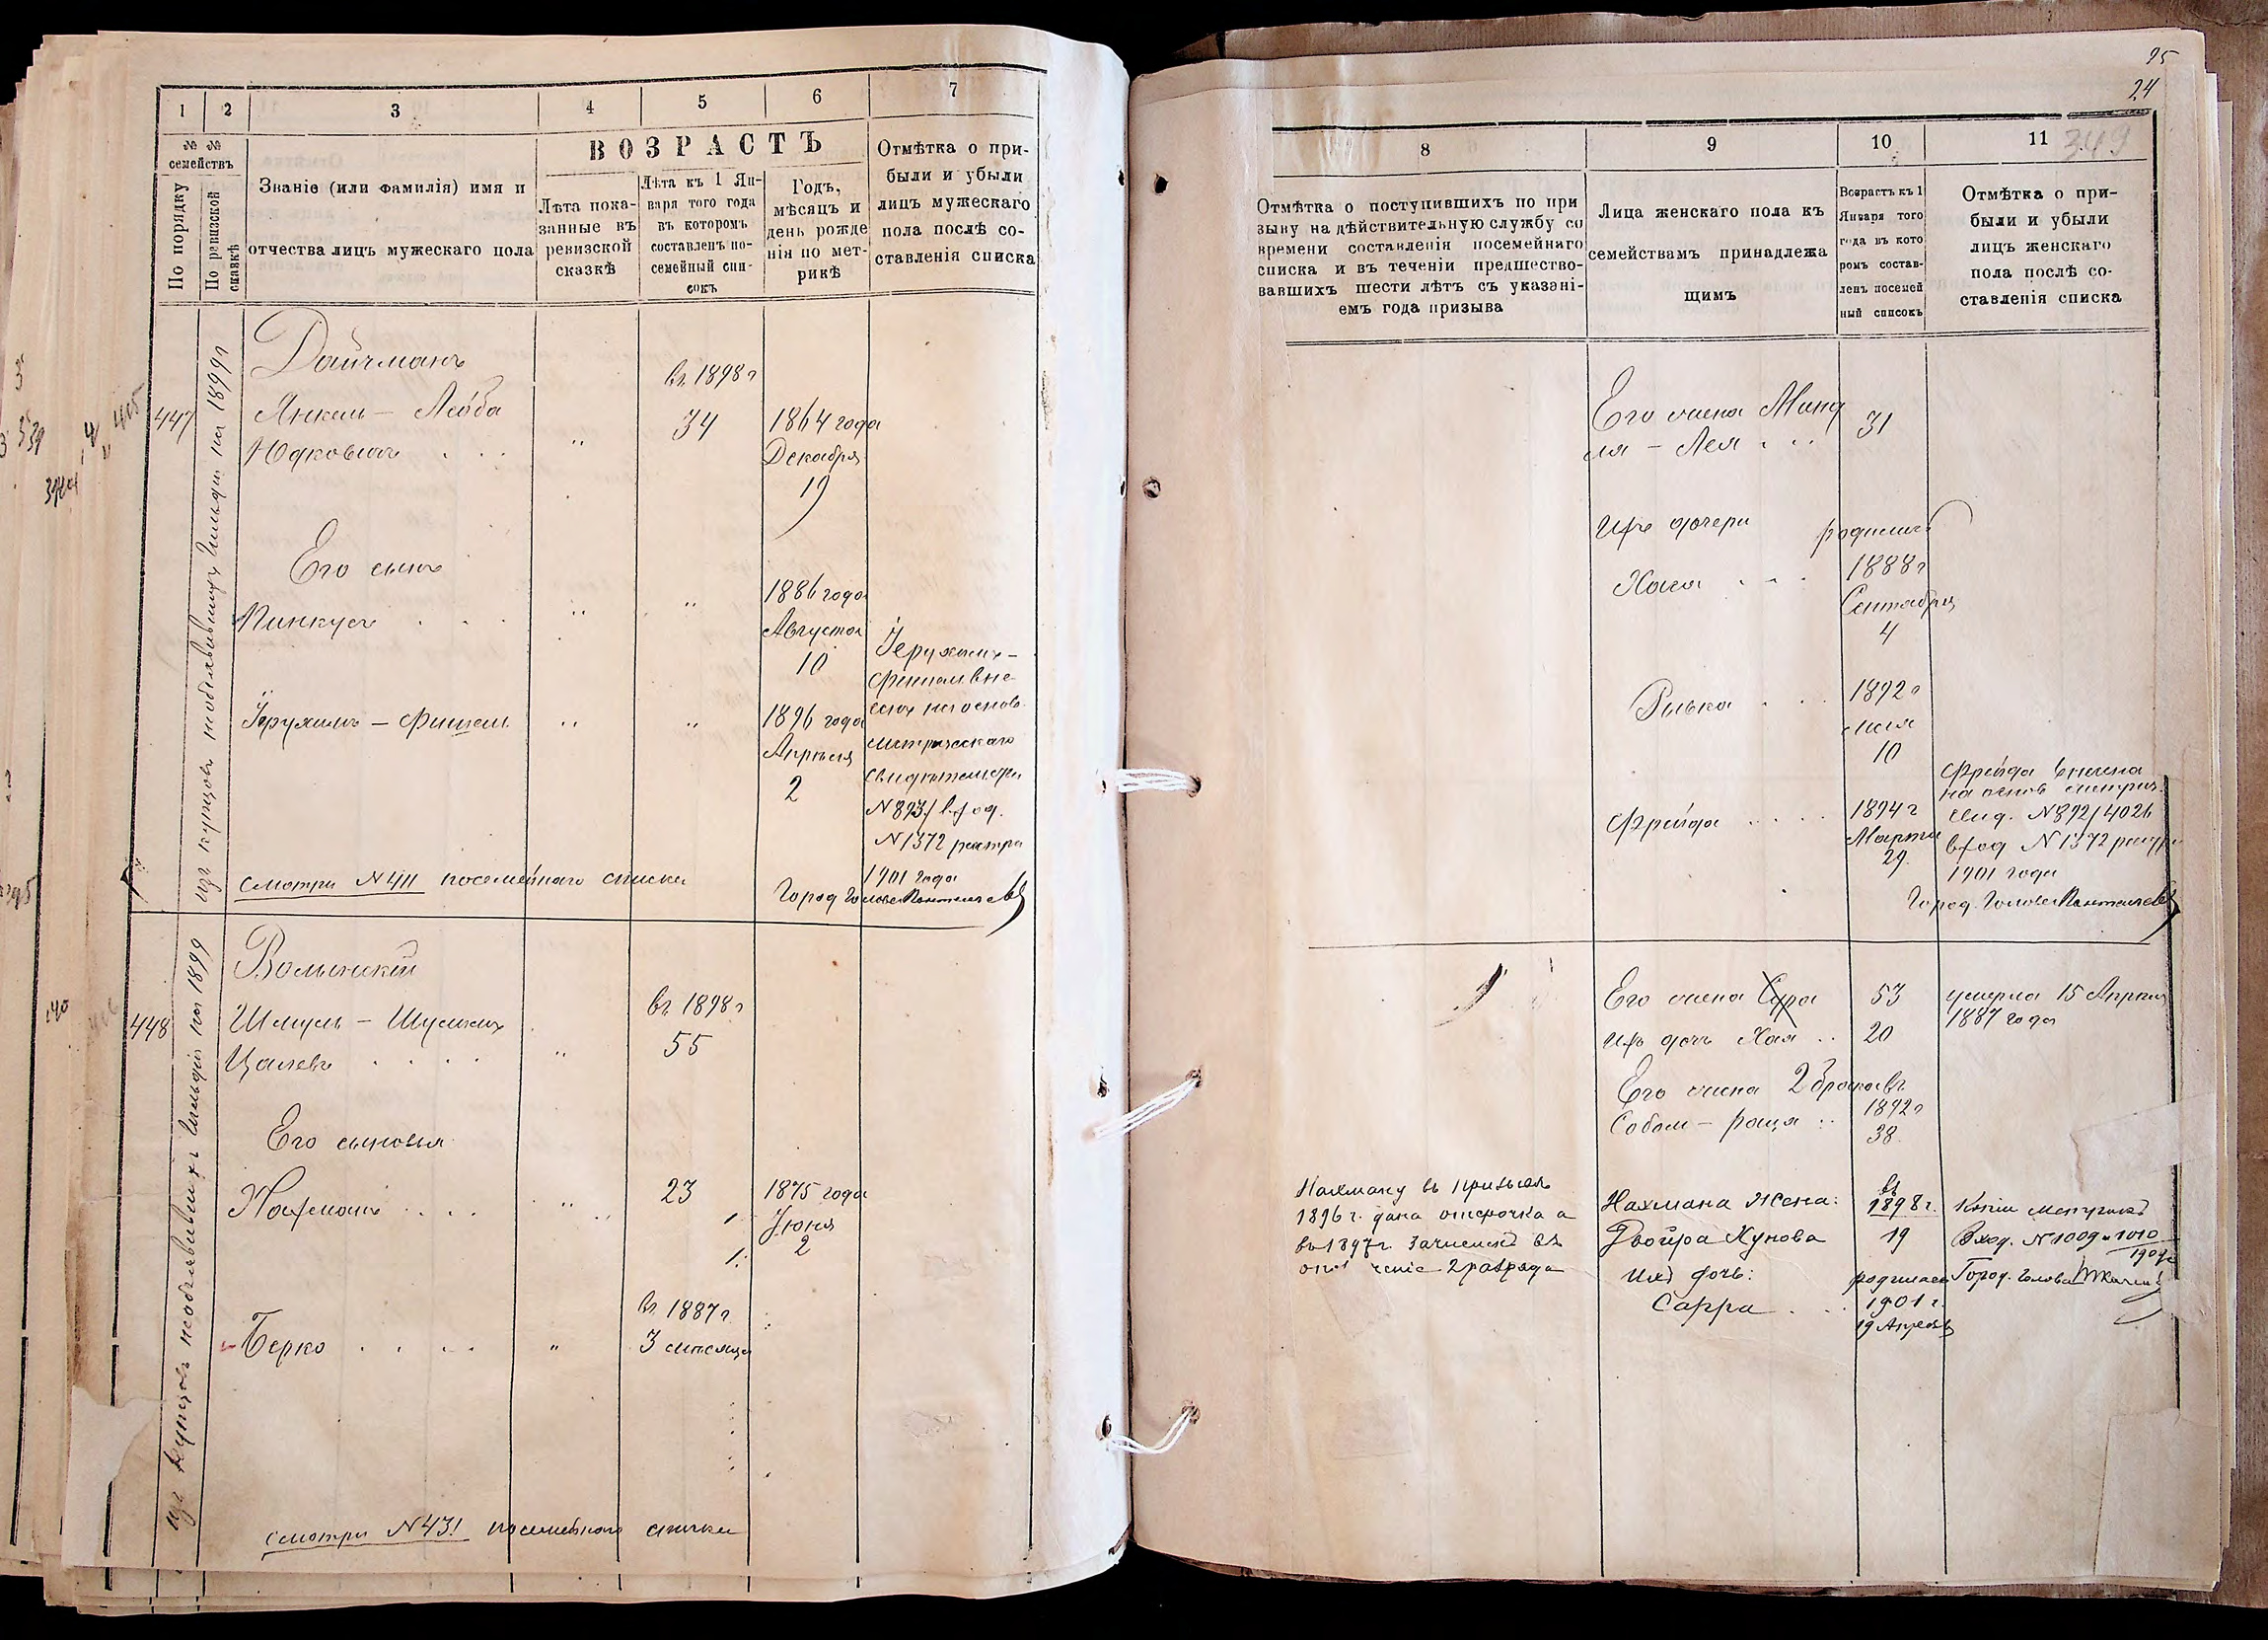 1 2 3 4 5 6 7
№ №
семействъ
По порядку
По ревизской
сказкѣ
Званіе (или фамилія) имя и
отчества лицъ мужескаго пола
ВОЗРАСТЪ
Лѣта пока-
занные въ
ревизской
сказкѣ
Лѣта къ 1 Ян-
варя того года
въ которомъ
составленъ по-
семейный спи-
сокъ
Годъ,
мѣсяцъ и
день рожде
нія по мет-
рикѣ
Отмѣтка о при-
были и убыли
лицъ мужескаго
пола послѣ со-
ставленія списка
изъ купцовъ необъявившихъ гильдіи на 1899 г
447
Дайчманъ
Янкель - Лейба
Юдковичъ
въ 1898 г
34
1864 года
Декабря
19
Его сынъ
Пинкусъ
1886 года
Августа
10
Іерухимъ - Фишель
1896 года
Апрѣля
2
Іерухимъ-
Фишель вне
сенъ на основ.
метрическаго
свидѣтельства
№ 893/ вход.
№ 1372
1901 года
Город. Голова
смотри № 411 посемейнаго списка
изъ купцовъ необъявившихъ гильдіи на 1899
448
Волынскій
Шмуль - Шулимъ
Цалевъ
въ 1898 г
55
Его сыновья
Нахманъ
23
1875 года
Іюня
2
Берко
въ 1887 г
3 мѣсяца
смотри № 431 посемейнаго списка
25
24
349
8 9 10 11
Отмѣтка о поступившихъ по при
зыву на дѣйствительную службу со
времени составленія посемейнаго
списка и въ теченіи предшество-
вавшихъ шести лѣтъ съ указані-
емъ года призыва
Лица женскаго пола къ
семействамъ принадлежа
щимъ
Возрастъ къ 1
Января того
года въ кото
ромъ состав-
ленъ посемей
ный списокъ
Отмѣтка о при-
были и убыли
лицъ женскаго
пола послѣ со-
ставленія списка
Его жена Минд
ля - Лея
31
Ихъ дочери
родились
Хася
1888 г
Сентября
4
Рывка
1892 г
10
Фрейда
1894 г
Марта
29.
Фрейда внесена
на основ метрич.
свид. № 892/4026
вход № 1372
1901 года
Город. Голова
Его жена Сура
53
умерла 15 Апрѣля
1887 года
Ихъ дочь Хая
20
Его жена 2 брака въ
1892 г
Соболь -
38.
Нахману въ призывъ
1896 г. дана отсрочка а
въ 1897 г. зачисленъ въ
ополченіе 2 разряда
Нахмана жена:
въ
1898 г.
Двойра Хунова
19
Копіи метрикъ
Вход. № 1009 и 1010
Город. Голова
Ихъ дочь:
родилась
Сарра
1901 г.
19 Апрѣля